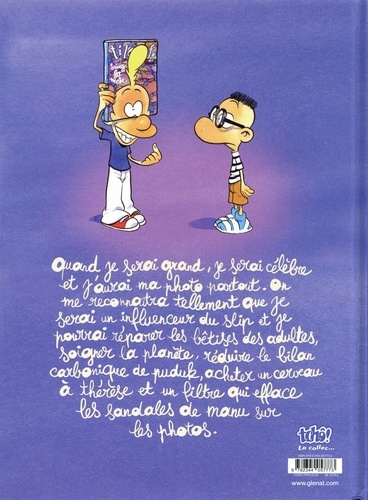 Quand je serai grand, je serai célèbre
et j'aurai ma photo partout. On
me reconnaîtra tellement que je
serai un influenceur du slip et je
pourrai réparer les bêtises des adultes,
soigner la planète, réduire le bilan
carbonique de puduk, acheter un cerveau
à thérèse et un filtre qui efface
les sandales de manu sur
les photos.
tchô!
La collec...
www.glenat.com